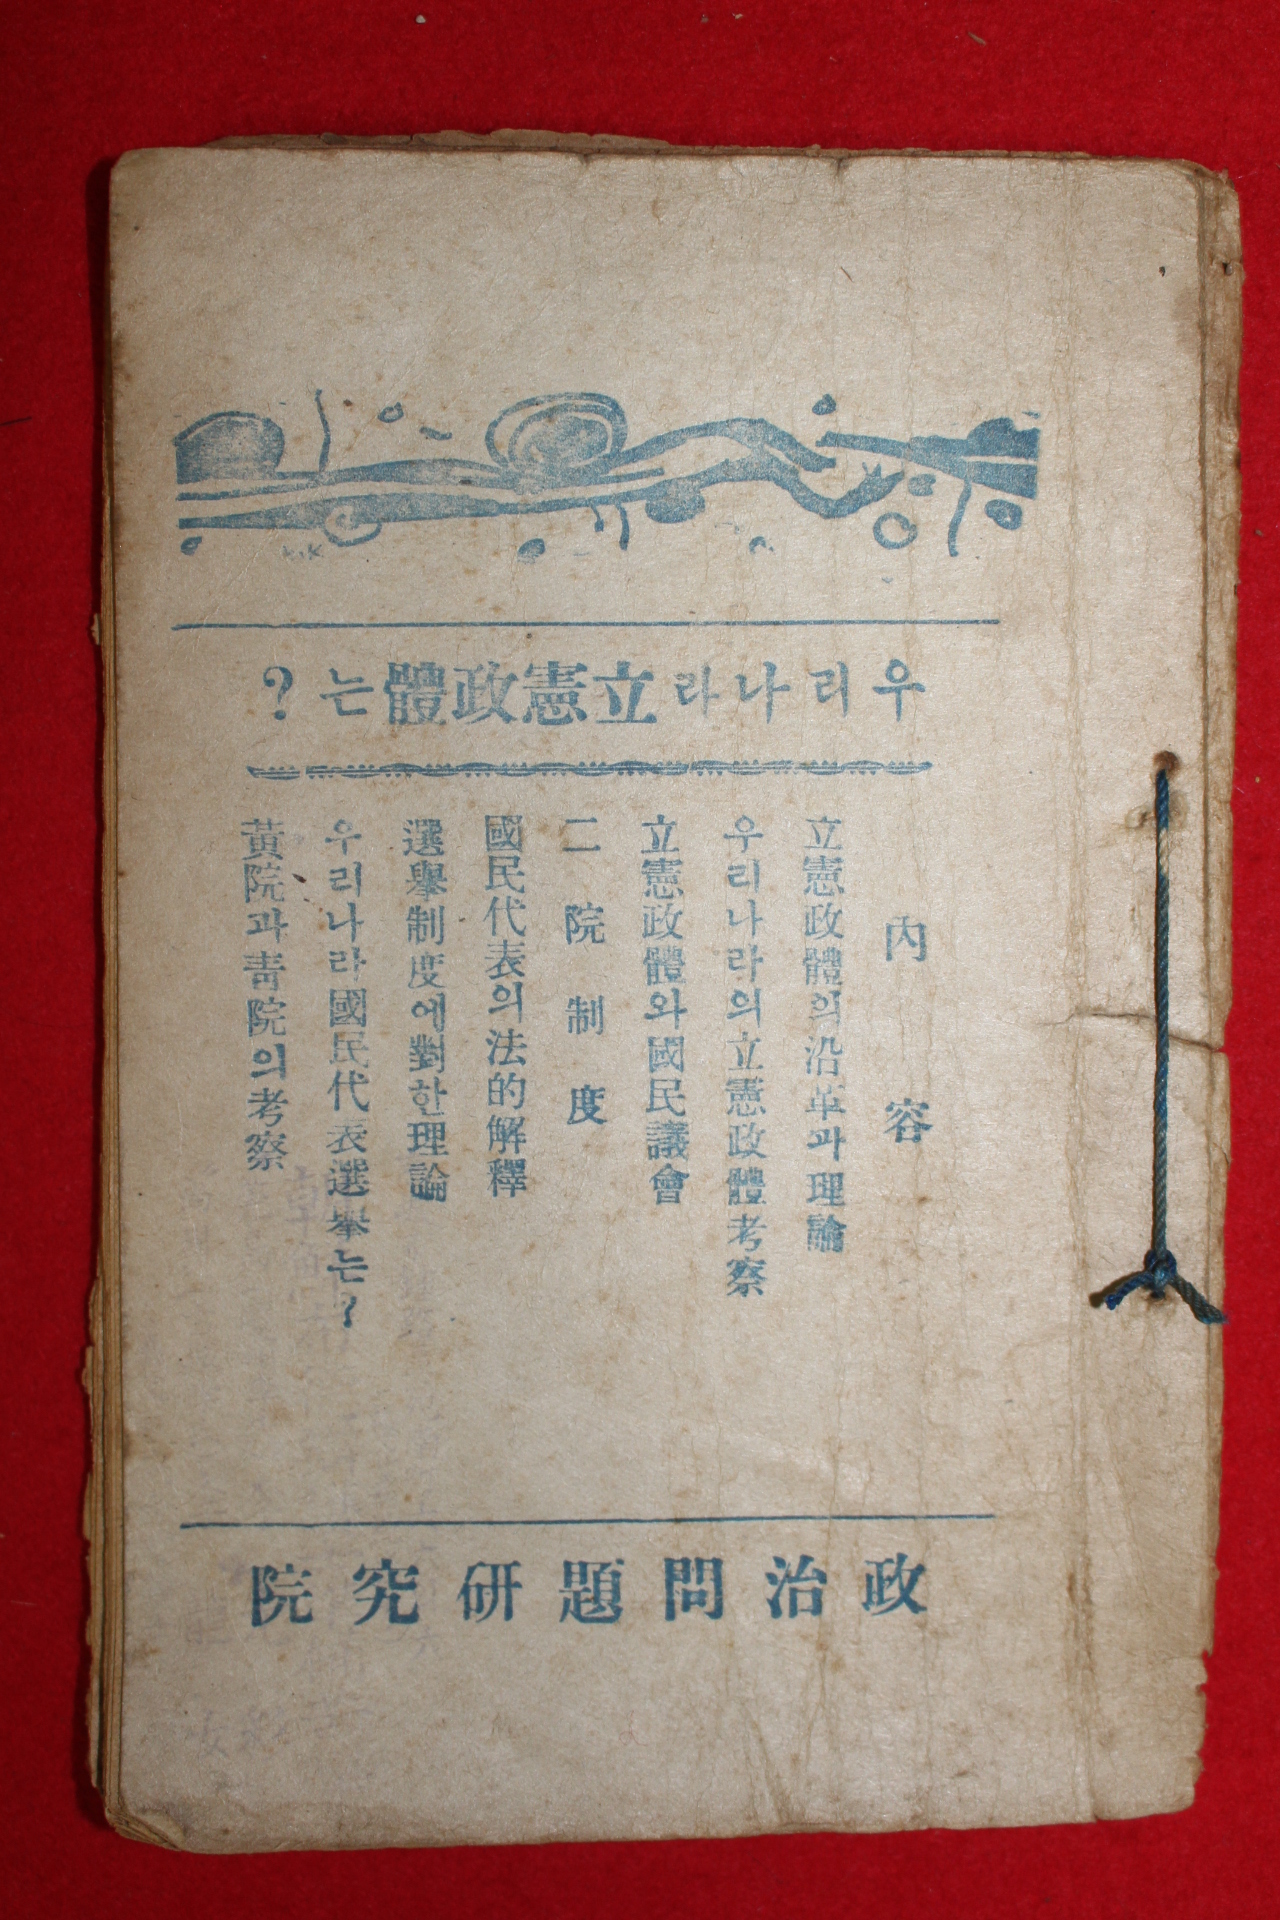 우리나라立憲政體는?
內容
立憲政體의沿革과理論
우리나라의立憲政體考察
立憲政體와國民議會
二院制度
國民代表의法的解釋
選擧制度에對한理論
우리나라國民代表選擧는?
黃院과靑院의考察
政治問題硏究院